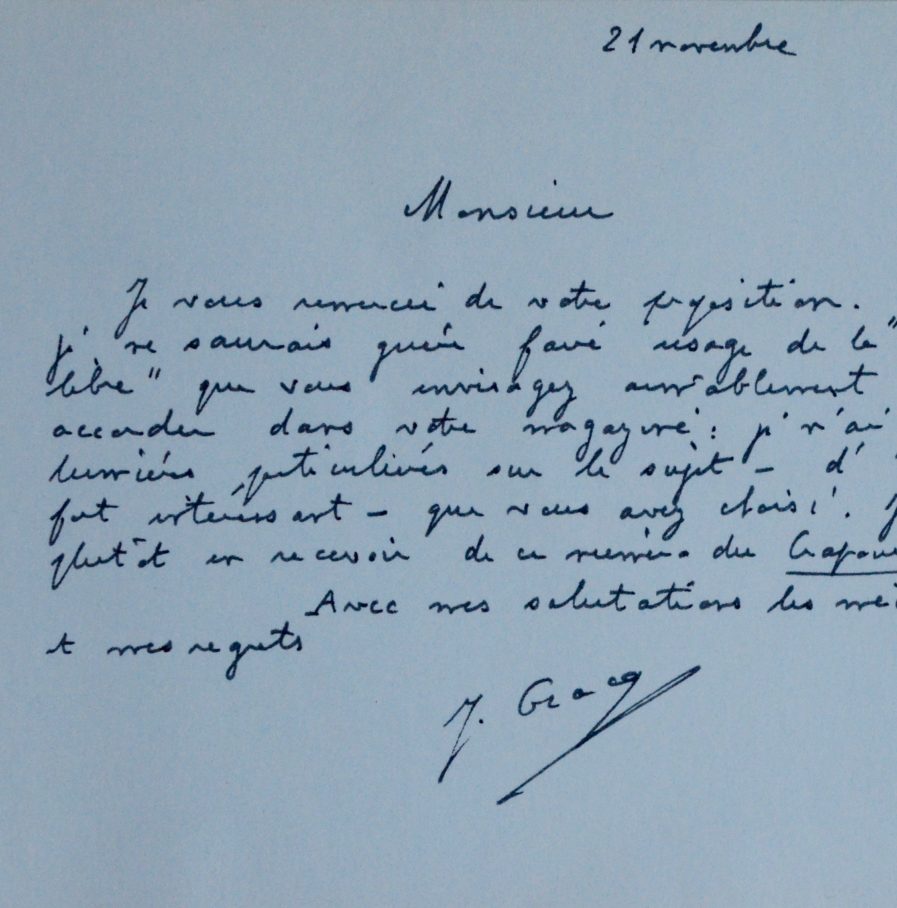 21 novembre
Monsieur
Je vous remercie de votre proposition.
je ne saurais guère faire usage de la "
libre" que vous envisagez aimablement
accorder dans votre magazine : je n'ai
lumières particulières sur le sujet - d'
fort intéressant - que vous avez choisi.
plutôt en recevoir de ce numéro du Crapou
Avec mes salutations les mei
et mes regrets
J. Gracq